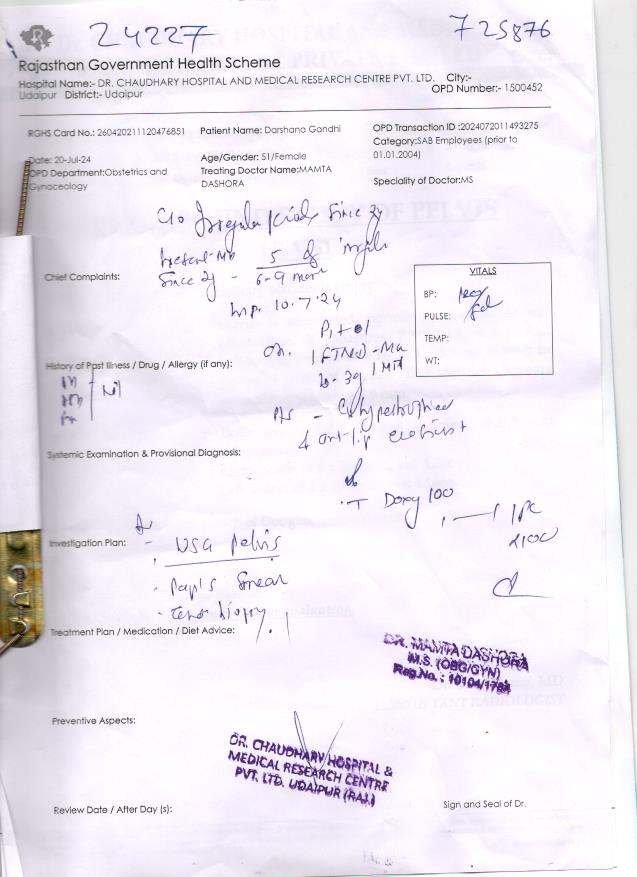 24227
725876
Rajasthan Government Health Scheme
Hospital Name:- DR. CHAUDHARY HOSPITAL AND MEDICAL RESEARCH CENTRE PVT. LTD. City:-
Udaipur District:- Udaipur
OPD Number:- 1500452
RGHS Card No.: 260420211120476851
Patient Name: Darshana Gandhi
OPD Transaction ID :2024072011493275
Category:SAB Employees (prior to
01.01.2004)
Date: 20-Jul-24
Age/Gender: 51/Female
OPD Department:Obstetrics and
Gynaceology
Treating Doctor Name:MAMTA
DASHORA
Speciality of Doctor:MS
C/o Irregular since 2y
5
Since 2y - 6-9
Lmp. 10.7.24
Chief Complaints:
VITALS
BP:
PULSE:
TEMP:
WT:
History of Past Illness / Drug / Allergy (if any):
Nil
Systemic Examination & Provisional Diagnosis:
T Doxy 100
Investigation Plan:
- USG Pelvis
- Pap's Smear
- biopsy
Treatment Plan / Medication / Diet Advice:
DR. MAMTA DASHORA
M.S. (OBG/GYN)
Reg.No. : 10104/1784
Preventive Aspects:
DR. CHAUDHARY HOSPITAL &
MEDICAL RESEARCH CENTRE
PVT. LTD. UDAIPUR (RAJ.)
Review Date / After Day (s):
Sign and Seal of Dr.